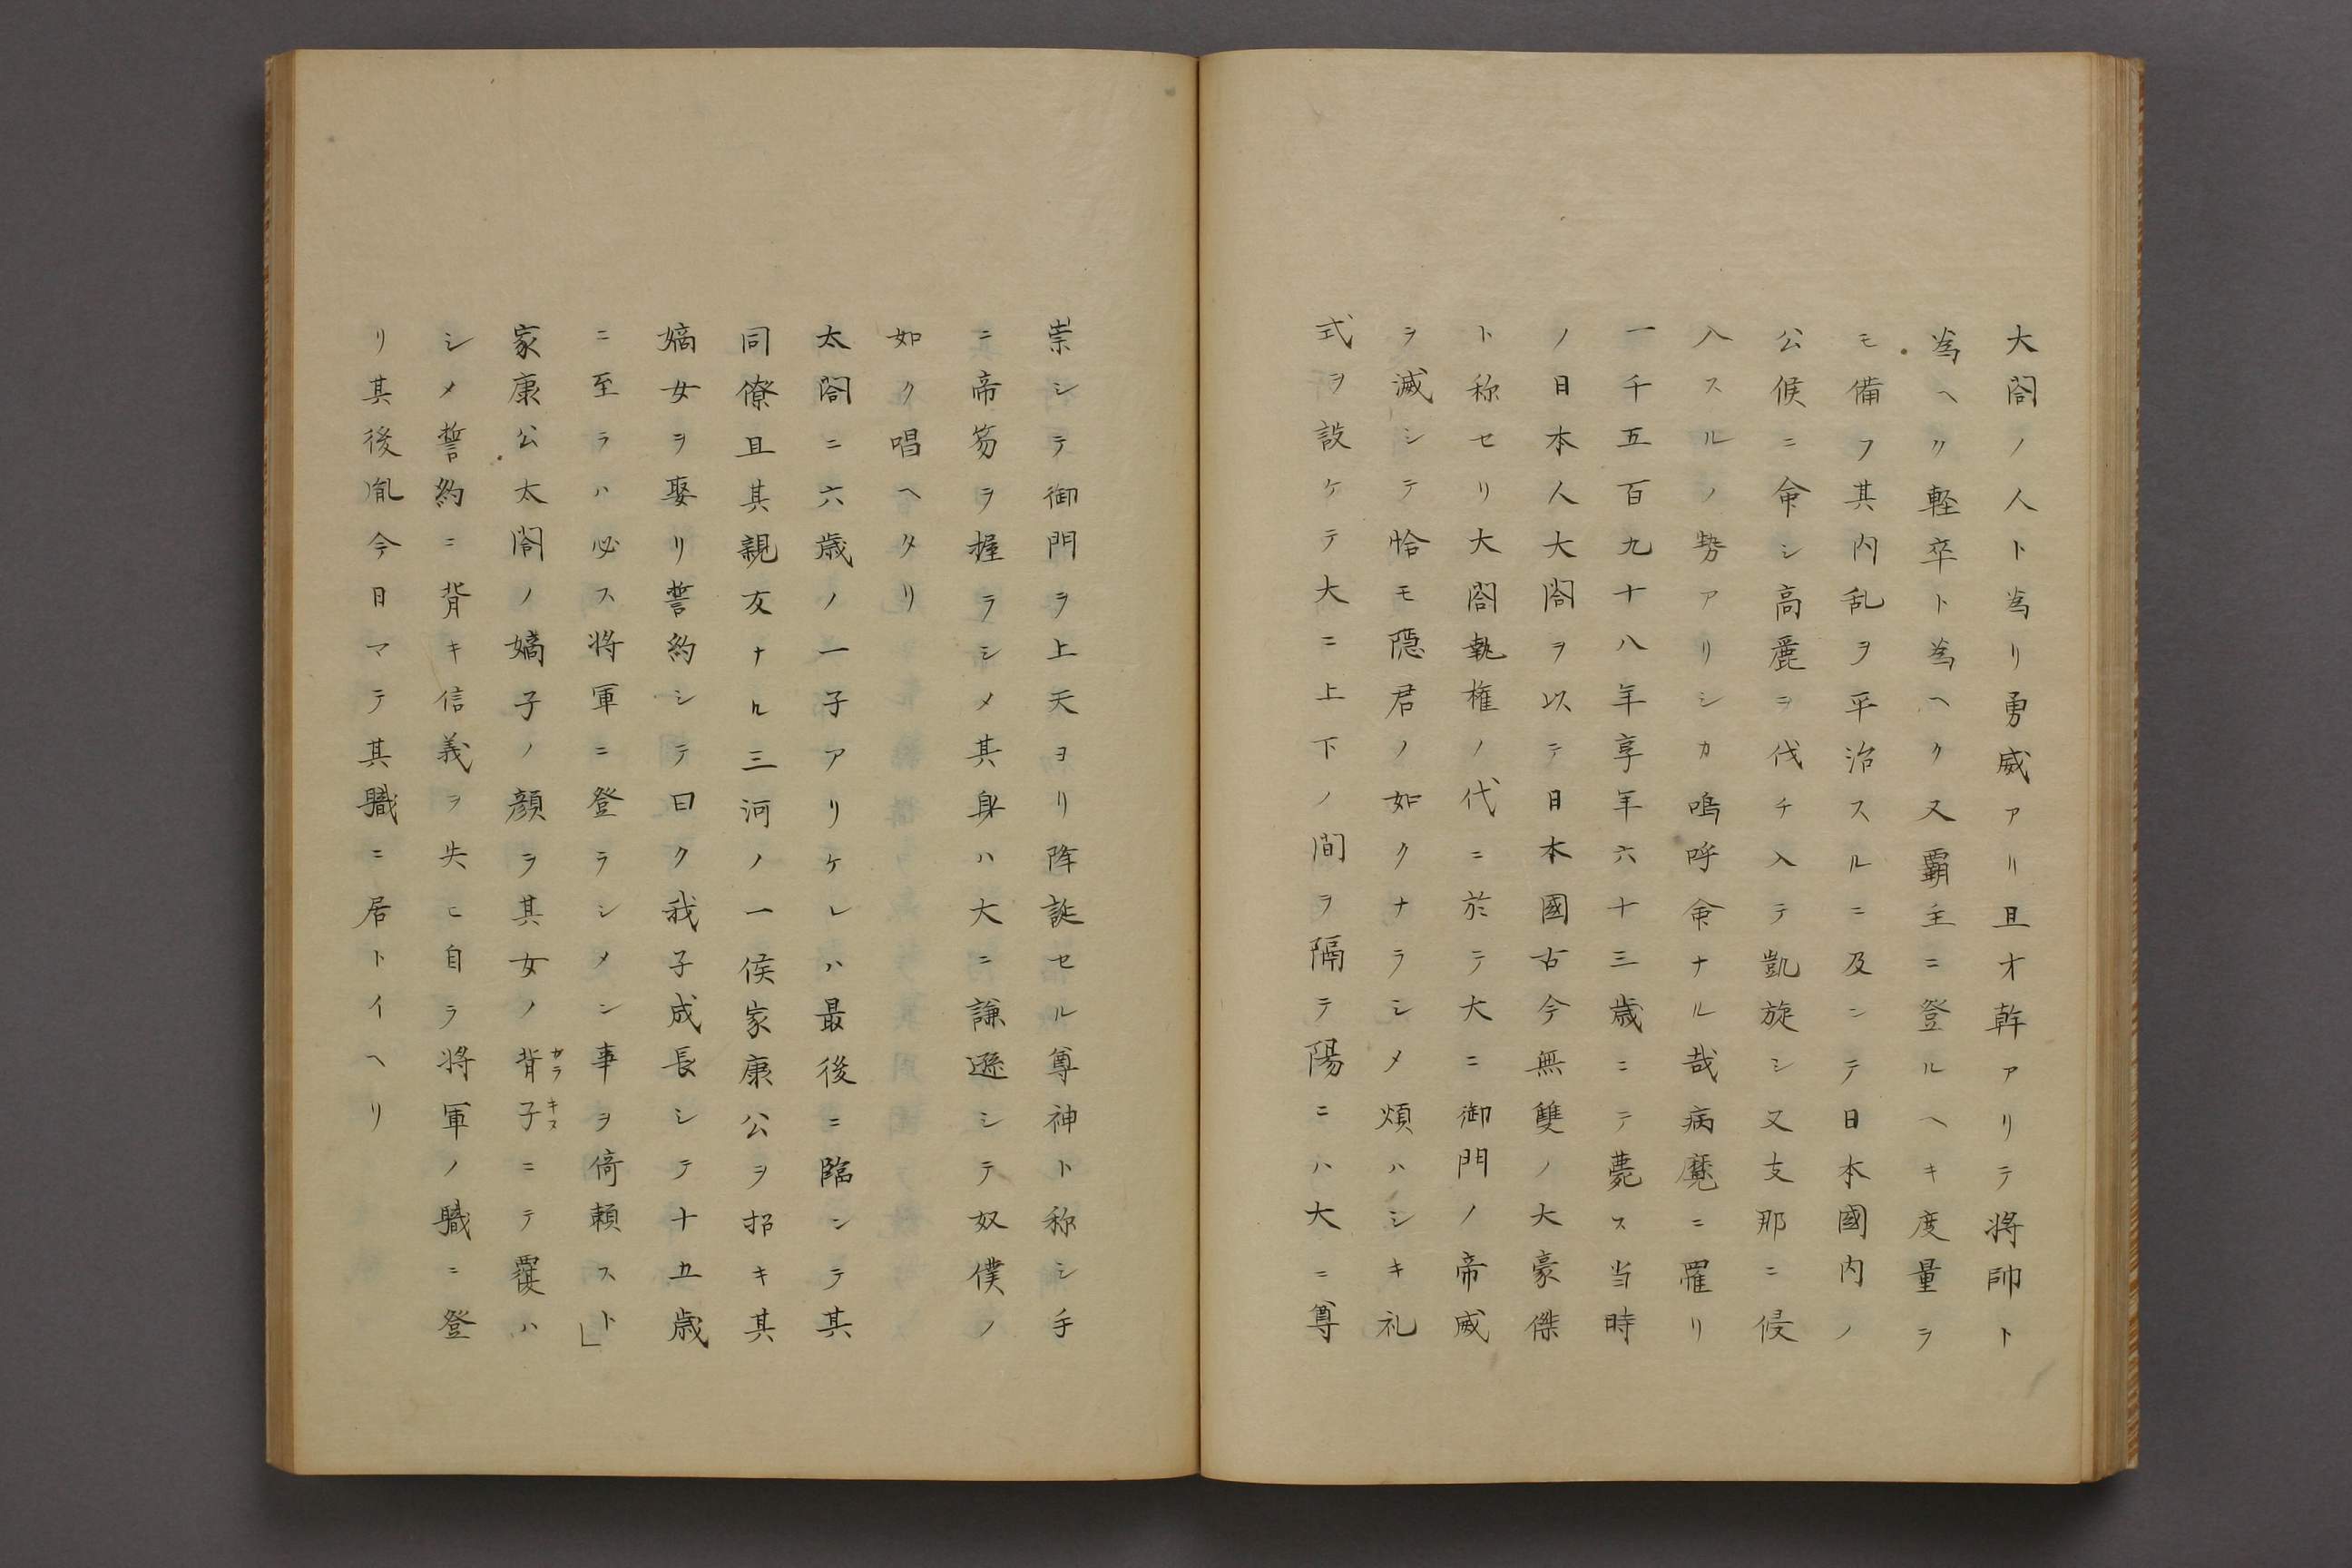 大閤ノ人ト為リ勇威アリ且才幹アリテ将帥ト
為ヘク軽卒ト為ヘク又覇主ニ登ルヘキ度量ヲ
モ備フ其内乱ヲ平治スルニ及ンテ日本國内ノ
公候ニ命シ高麗ヲ伐チ入テ凱旋シ又支那ニ侵
入スルノ勢アリシカ嗚呼命ナル哉病魔ニ罹リ
一千五百九十八年享年六十三歳ニテ薨ス当時
ノ日本人大閤ヲ以テ日本國古今無雙ノ大豪傑
ト称セリ大閤執権ノ代ニ於テ大ニ御門ノ帝威
ヲ滅シテ恰モ隠君ノ如クナラシメ煩ハシキ礼
式ヲ設ケテ大ニ上下ノ間ヲ隔テ陽ニハ大ニ尊
崇シテ御門ヲ上天ヨリ降誕セル尊神ト称シ手
ニ帝笏ヲ握ラシメ其身ハ大ニ謙遜シテ奴僕ノ
如ク唱ヘタリ
太閤ニ六歳ノ一子アリケレハ最後ニ臨ンテ其
同僚且其親友ナル三河ノ一侯家康公ヲ招キ其
嫡女ヲ娶リ誓約シテ曰ク我子成長シテ十五歳
ニ至ラハ必ス将軍ニ登ラシメン事ヲ倚頼スト」
家康公太閤ノ嫡子ノ顔ヲ其女ノ背子ガラキスニテ覆ハ
シメ誓約ニ背キ信義ヲ失ヒ自ラ将軍ノ職ニ登
リ其後胤今日マテ其職ニ居トイヘリ